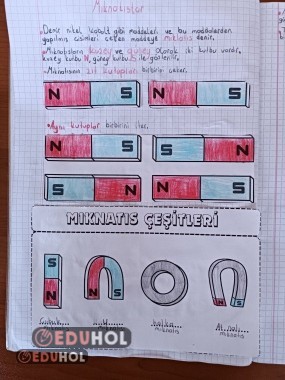 Mıknatıslar
Demir nikel kobalt gibi maddeleri ve bu maddelerden
yapılmış cisimleri çeken maddeye mıknatıs denir.
Mıknatısların kuzey ve güney olarak iki kutbu vardır.
kuzey kutbu N, güney kutbu S ile gösterilir.
Mıknatısların zıt kutupları birbirini çeker.
N S N S
Aynı kutuplar birbirini iter.
N S S N
S N N S
MIKNATIS ÇEŞİTLERİ
N S N S N S
Çubuk.... ...U.... halka.... At nalı....
mıknatıs mıknatıs mıknatıs
EDUHOL
EDUHOL